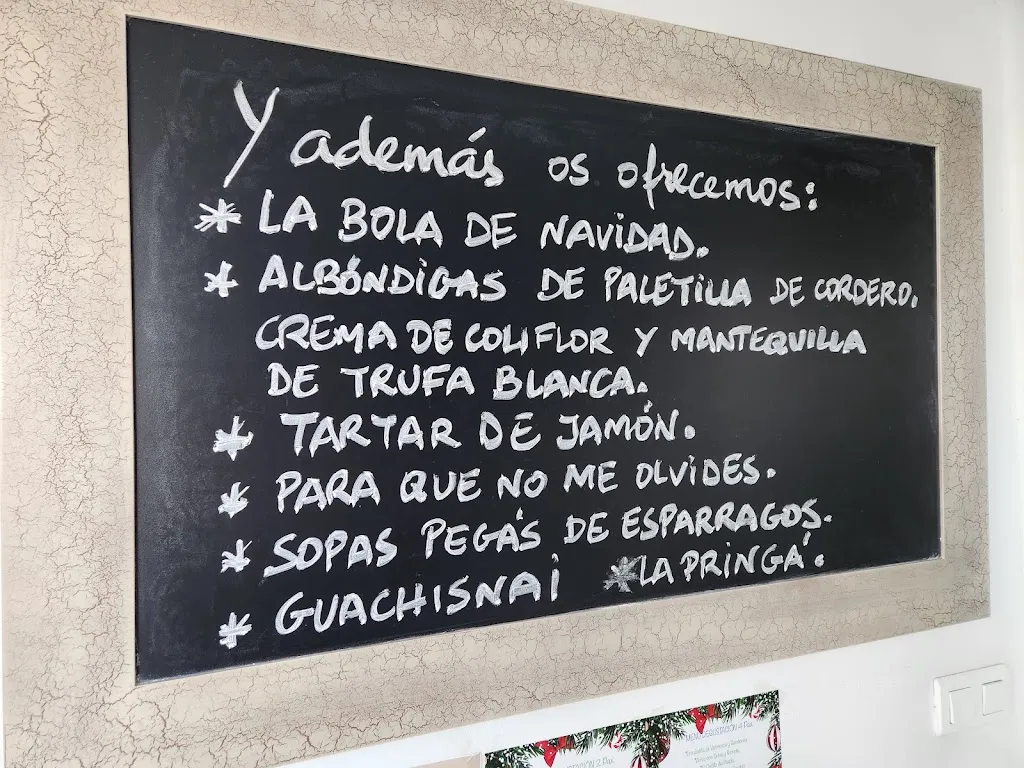 Y además os ofrecemos:
* LA BOLA DE NAVIDAD.
* ALBÓNDIGAS DE PALETILLA DE CORDERO.
CREMA DE COLIFLOR Y MANTEQUILLA
DE TRUFA BLANCA.
* TARTAR DE JAMÓN.
* PARA QUE NO ME OLVIDES.
* SOPAS PEGÁS DE ESPARRAGOS.
* GUACHISNAI *LA PRINGÁ.